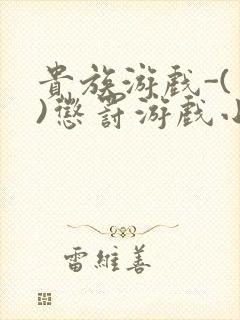 貴族游戲-(
)懲罰游戲小
雷維善